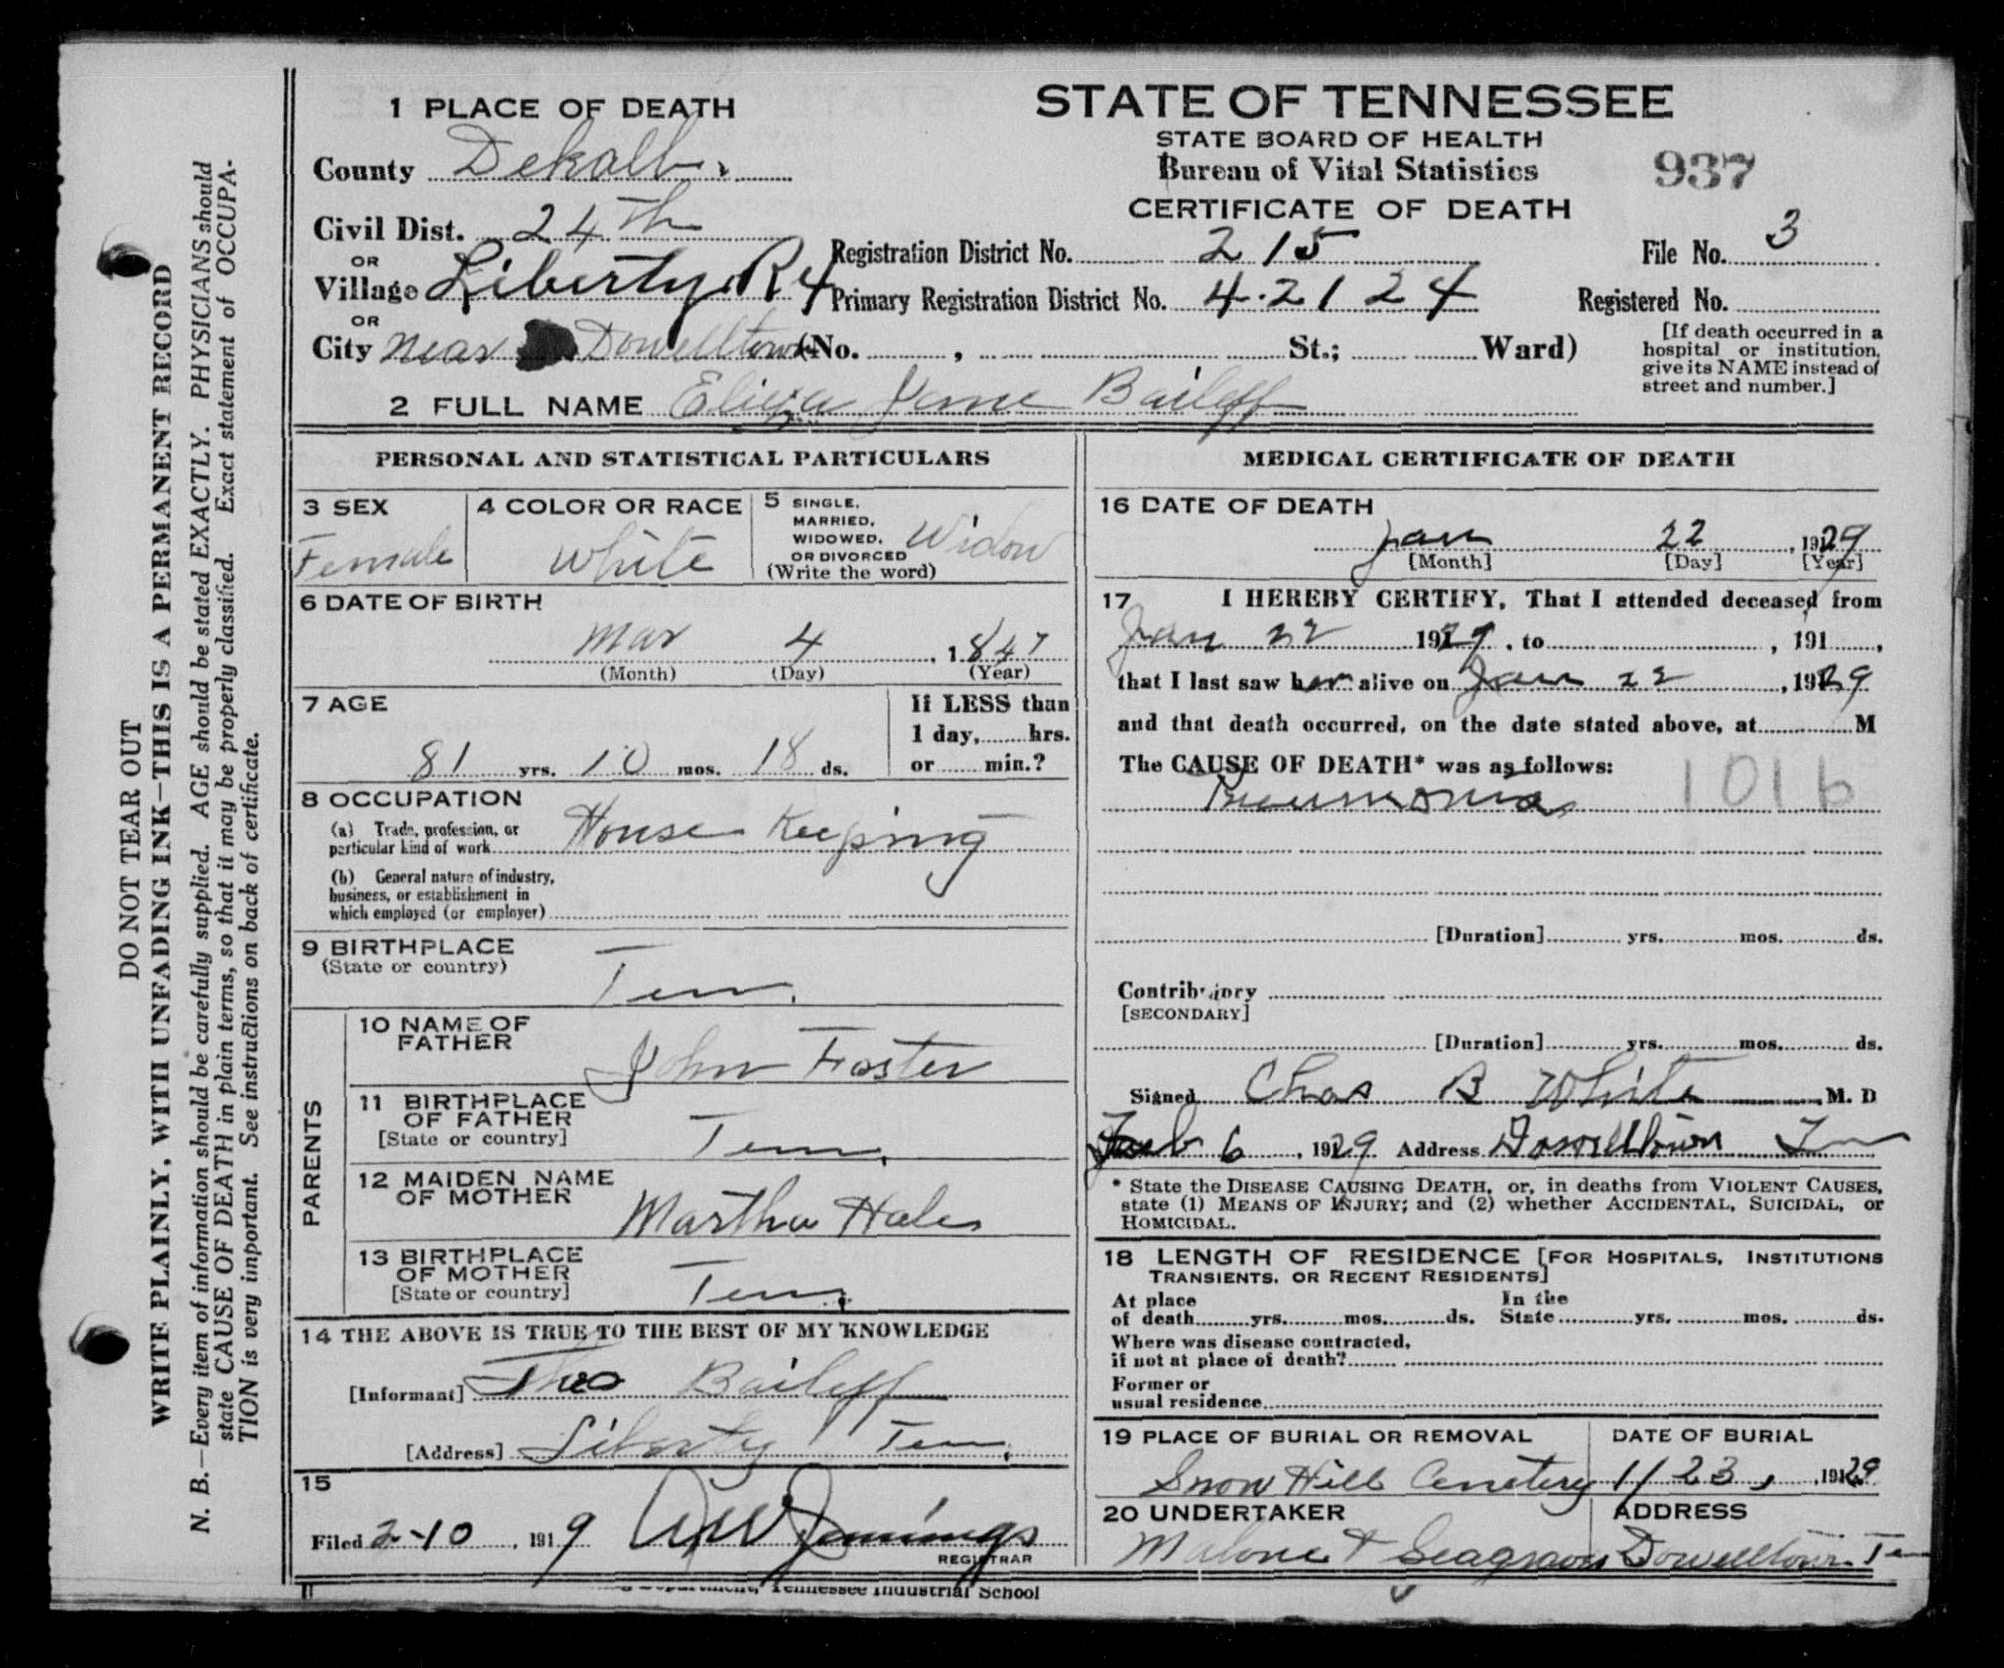 DO NOT TEAR OUT
WRITE PLAINLY, WITH UNFADING INK—THIS IS A PERMANENT RECORD
N. B.—Every item of information should be carefully supplied. AGE should be stated EXACTLY. PHYSICIANS should
state CAUSE OF DEATH in plain terms, so that it may be properly classified. Exact statement of OCCUPA-
TION is very important. See instructions on back of certificate.
1 PLACE OF DEATH
County Dekalb.
Civil Dist. 24th
OR
Village Liberty R4
OR
City near Dowelltown (No. , St.; Ward)
STATE OF TENNESSEE
STATE BOARD OF HEALTH
Bureau of Vital Statistics
CERTIFICATE OF DEATH
937
Registration District No. 215
File No. 3
Primary Registration District No. 4.2124
Registered No.
[If death occurred in a
hospital or institution,
give its NAME instead of
street and number.]
2 FULL NAME Eliza Jane Bailiff
PERSONAL AND STATISTICAL PARTICULARS
3 SEX
Female
4 COLOR OR RACE
White
5 SINGLE,
MARRIED,
WIDOWED,
OR DIVORCED
(Write the word)
Widow
6 DATE OF BIRTH
Mar 4 , 1847
(Month) (Day) (Year)
7 AGE
81 yrs. 10 mos. 18 ds.
If LESS than
1 day, hrs.
or min.?
8 OCCUPATION
(a) Trade, profession, or
particular kind of work House Keeping
(b) General nature of industry,
business, or establishment in
which employed (or employer)
9 BIRTHPLACE
(State or country)
Tenn.
PARENTS
10 NAME OF
FATHER
John Foster
11 BIRTHPLACE
OF FATHER
[State or country]
Tenn.
12 MAIDEN NAME
OF MOTHER
Martha Hales
13 BIRTHPLACE
OF MOTHER
[State or country]
Tenn.
14 THE ABOVE IS TRUE TO THE BEST OF MY KNOWLEDGE
[Informant] Theo Bailiff
[Address] Liberty Tenn.
15
Filed 2-10 , 1919 Jennings
REGISTRAR
MEDICAL CERTIFICATE OF DEATH
16 DATE OF DEATH
Jan 22 , 1929
[Month] [Day] [Year]
17 I HEREBY CERTIFY, That I attended deceased from
Jan 22 1929, to , 191 ,
that I last saw her alive on Jan 22 , 1929
and that death occurred, on the date stated above, at M
The CAUSE OF DEATH* was as follows:
Pneumonia 101b
[Duration] yrs. mos. ds.
Contributory
[SECONDARY]
[Duration] yrs. mos. ds.
Signed Chas B White , M. D
Feb 6 , 1929 Address Dowelltown Tenn
* State the DISEASE CAUSING DEATH, or, in deaths from VIOLENT CAUSES,
state (1) MEANS OF INJURY; and (2) whether ACCIDENTAL, SUICIDAL, or
HOMICIDAL.
18 LENGTH OF RESIDENCE [FOR HOSPITALS, INSTITUTIONS
TRANSIENTS, OR RECENT RESIDENTS]
At place
of death yrs. mos. ds.
In the
State yrs. mos. ds.
Where was disease contracted,
if not at place of death?
Former or
usual residence
19 PLACE OF BURIAL OR REMOVAL
Snow Hill Cemetery
DATE OF BURIAL
1/23, , 1929
20 UNDERTAKER
Malone & Seagraves
ADDRESS
Dowelltown Ten
Department, Tennessee Industrial School